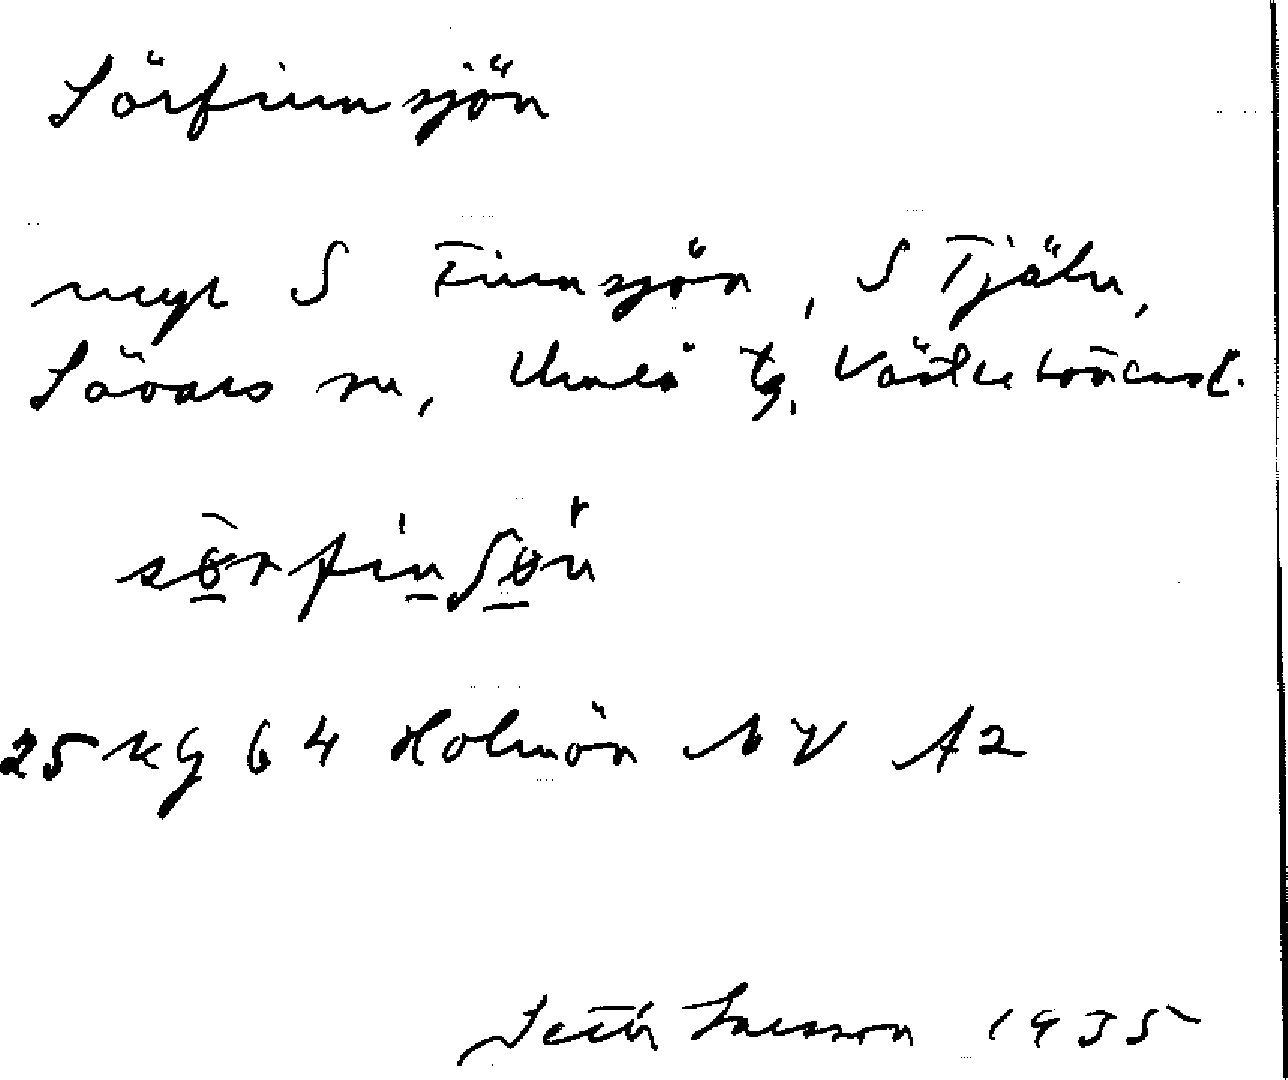 Sörfinnsjön
S Finnsjön, S Tjäln,
Sävars sn, Umeå tg, Västerbottens l.
sörfinʃøn
25 KG 64 Holmön NV A2
Seth Larsson 1935